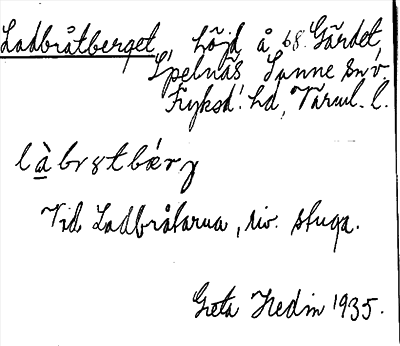 Ladbråtberget, höjd å 68. Gärdet,
Spelnäs Sunne sn v.
Fryksd. hd, Värml. l.
làbrɤtbærj
Vid Ladbråtarna, riv. stuga.
Greta Hedin 1935.